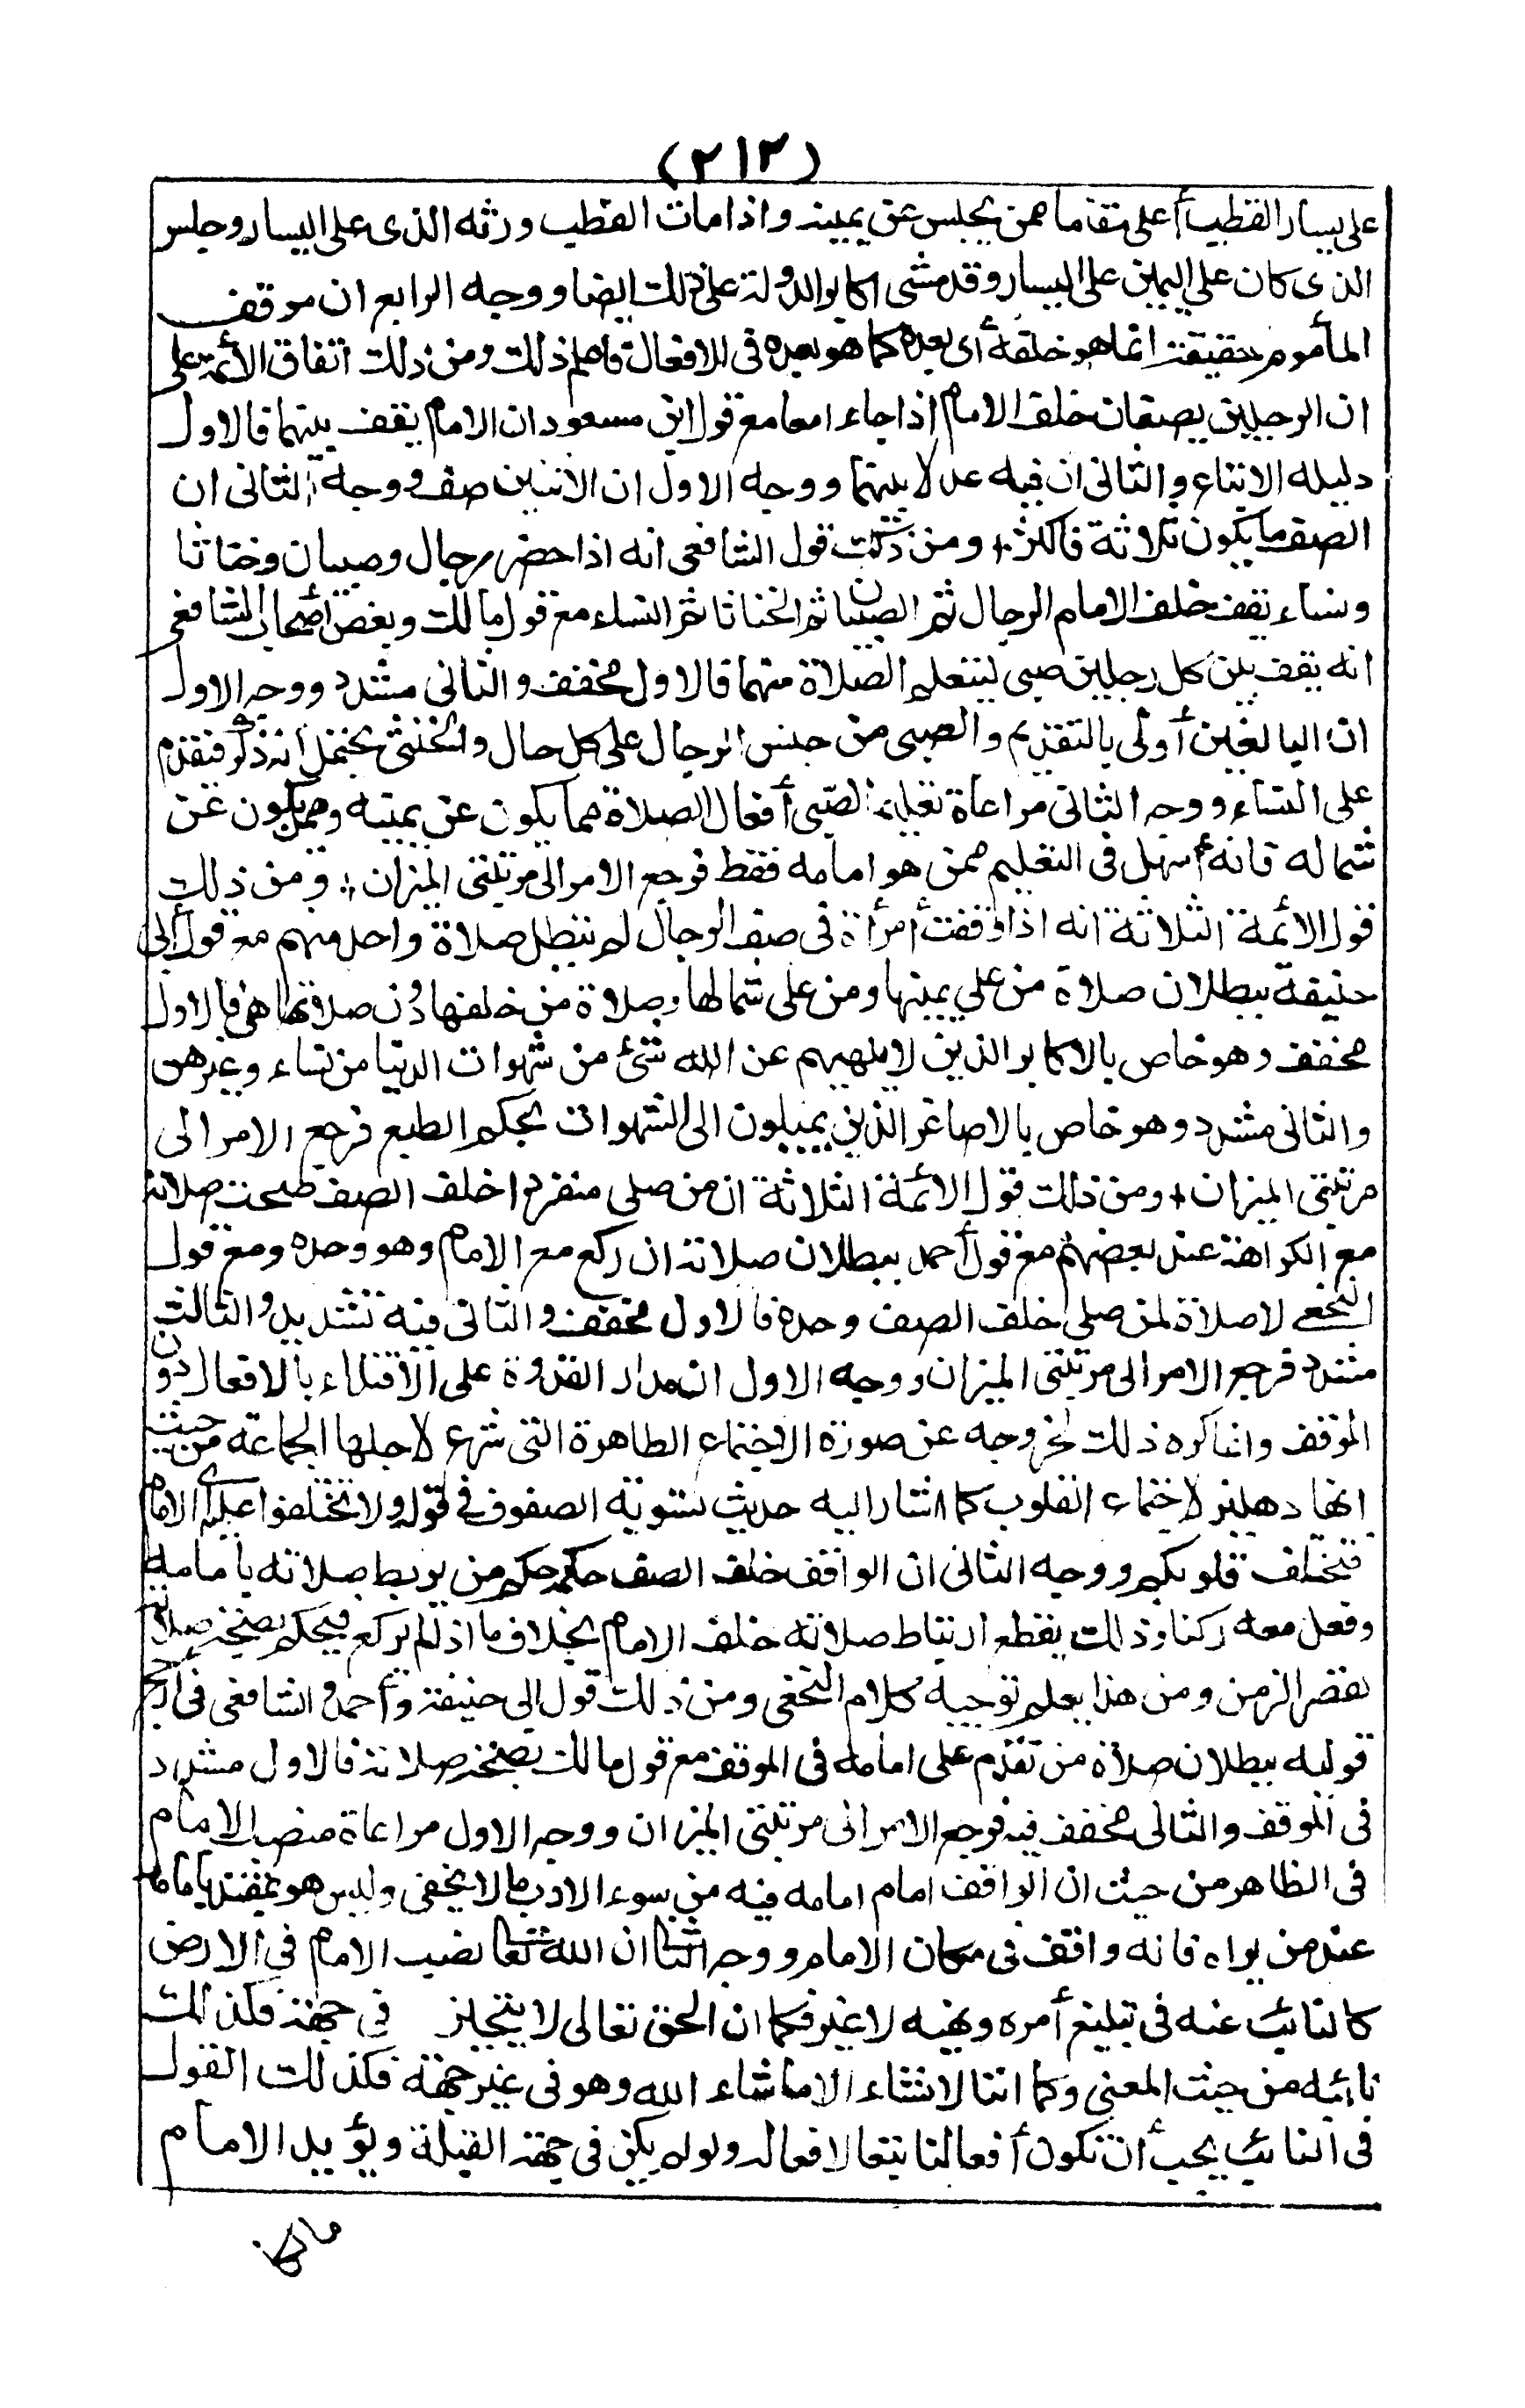 (٢١٣)
على يسار القطب أعلى مقاما ممن يجلس عن يمينه واذا مات القطب ورثه الذى على اليسار وجلس
الذى كان على اليمين على اليسار وقد مشى اكابر الدولة على ذلك ايضا ووجه الرابع ان موقف
المأموم حقيقة انما هو خلفه أى بعده كما هو بعده فى الافعال فاعلم ذلك ومن ذلك اتفاق الأئمة على
ان الرجلين يصفان خلف الامام اذا جاءا معا مع قول ابن مسعود ان الامام يقف بينهما فالاول
دليله الاتباع والثانى ان فيه عدلا بينهما ووجه الاول ان الاثنين صف ووجه الثانى ان
الصف ما يكون ثلاثة فاكثر ومن ذلك قول الشافعى انه اذا حضر رجال وصبيان وخناثا
ونساء يقف خلف الامام الرجال ثم الصبيان ثم الخناثا ثم النساء مع قول مالك وبعض أصحاب الشافعى
انه يقف بين كل رجلين صبى ليتعلم الصلاة منهما فالاول مخفف والثانى مشدد ووجه الاول
ان البالغين أولى بالتقديم والصبى من جنس الرجال على كل حال والخنثى يحتمل انه ذكر فتقدم
على النساء ووجه الثانى مراعاة تعليم الصبى أفعال الصلاة مما يكون عن يمينه وممن يكون عن
شماله فانه أسهل فى التعليم ممن هو امامه فقط فرجع الامر الى مرتبتى الميزان ومن ذلك
قول الأئمة الثلاثة انه اذا وقفت أمرأة فى صف الرجال لم تبطل صلاة واحد منهم مع قول أبى
حنيفة ببطلان صلاة من على يمينها ومن على شمالها وصلاة من خلفها دون صلاتها هى فالاول
مخفف وهو خاص بالاكابر الذين لا يلهيهم عن الله شئ من شهوات الدنيا من نساء وغيرهن
والثانى مشدد وهو خاص بالاصاغر الذين يميلون الى الشهوات بحكم الطبع فرجع الامر الى
مرتبتى الميزان ومن ذلك قول الأئمة الثلاثة ان من صلى منفردا خلف الصف صحت صلاته
مع الكراهة عند بعضهم مع قول أحمد ببطلان صلاته ان ركع مع الامام وهو وحده ومع قول
النخعى لا صلاة لمن صلى خلف الصف وحده فالاول مخفف والثانى فيه تشديد والثالث
مشدد فرجع الامر الى مرتبتى الميزان ووجه الاول ان مدار القدوة على الاقتداء بالافعال دون
الموقف وانما كره ذلك لخروجه عن صورة الاجتماع الظاهرة التى شرع لاجلها الجماعة من حيث
انها دهليز لاجتماع القلوب كما اشار اليه حديث تسوية الصفوف فى قوله ولا تختلفوا على الامام
فتختلف قلوبكم ووجه الثانى ان الواقف خلف الصف حكمه حكم من يربط صلاته بامامه
وفعل معه ركنا وذلك يقطع ارتباط صلاته خلف الامام بخلاف ما اذا لم يركع فيحكم بصحة صلاته
لقصر الزمن ومن هذا يعلم توجيه كلام النخعى ومن ذلك قول ابى حنيفة وأحمد والشافعى فى أرجح
قوليه ببطلان صلاة من تقدم على امامه فى الموقف مع قول مالك بصحة صلاته فالاول مشدد
فى الموقف والثانى مخفف فيه فرجع الامر الى مرتبتى الميزان ووجه الاول مراعاة منصب الامام
فى الظاهر من حيث ان الواقف امام امامه فيه من سوء الادب ما لا يخفى وليس هو بمقتد بامامه
عند من يراه فانه واقف فى مكان الامام ووجه الثانى ان الله تعالى نصب الامام فى الارض
كالنائب عنه فى تبليغ أمره ونهيه لا غير فكما ان الحق تعالى لا يتحيز فى جهة فكذلك
نائبه من حيث المعنى وكما اننا لا نشاء الا ما شاء الله وهو فى غير جهة فكذلك القول
فى النائب يجب أن تكون أفعالنا تبعا لافعاله ولو لم يكن فى جهة القبلة ويؤيد الامام